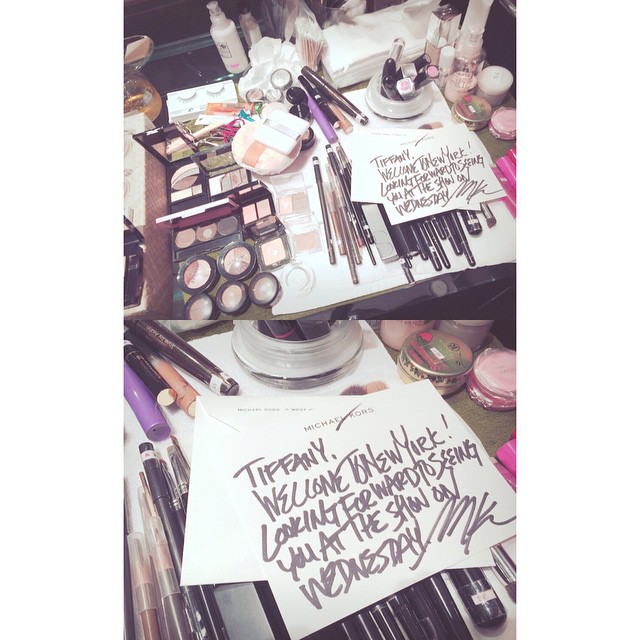 TIFFANY,
WELCOME TO NEW YORK!
LOOKING FORWARD TO SEEING
YOU AT THE SHOW ON
WEDNESDAY
MK
MICHAEL KORS
MICHAEL KORS
TIFFANY,
WELCOME TO NEW YORK!
LOOKING FORWARD TO SEEING
YOU AT THE SHOW ON
WEDNESDAY
MK